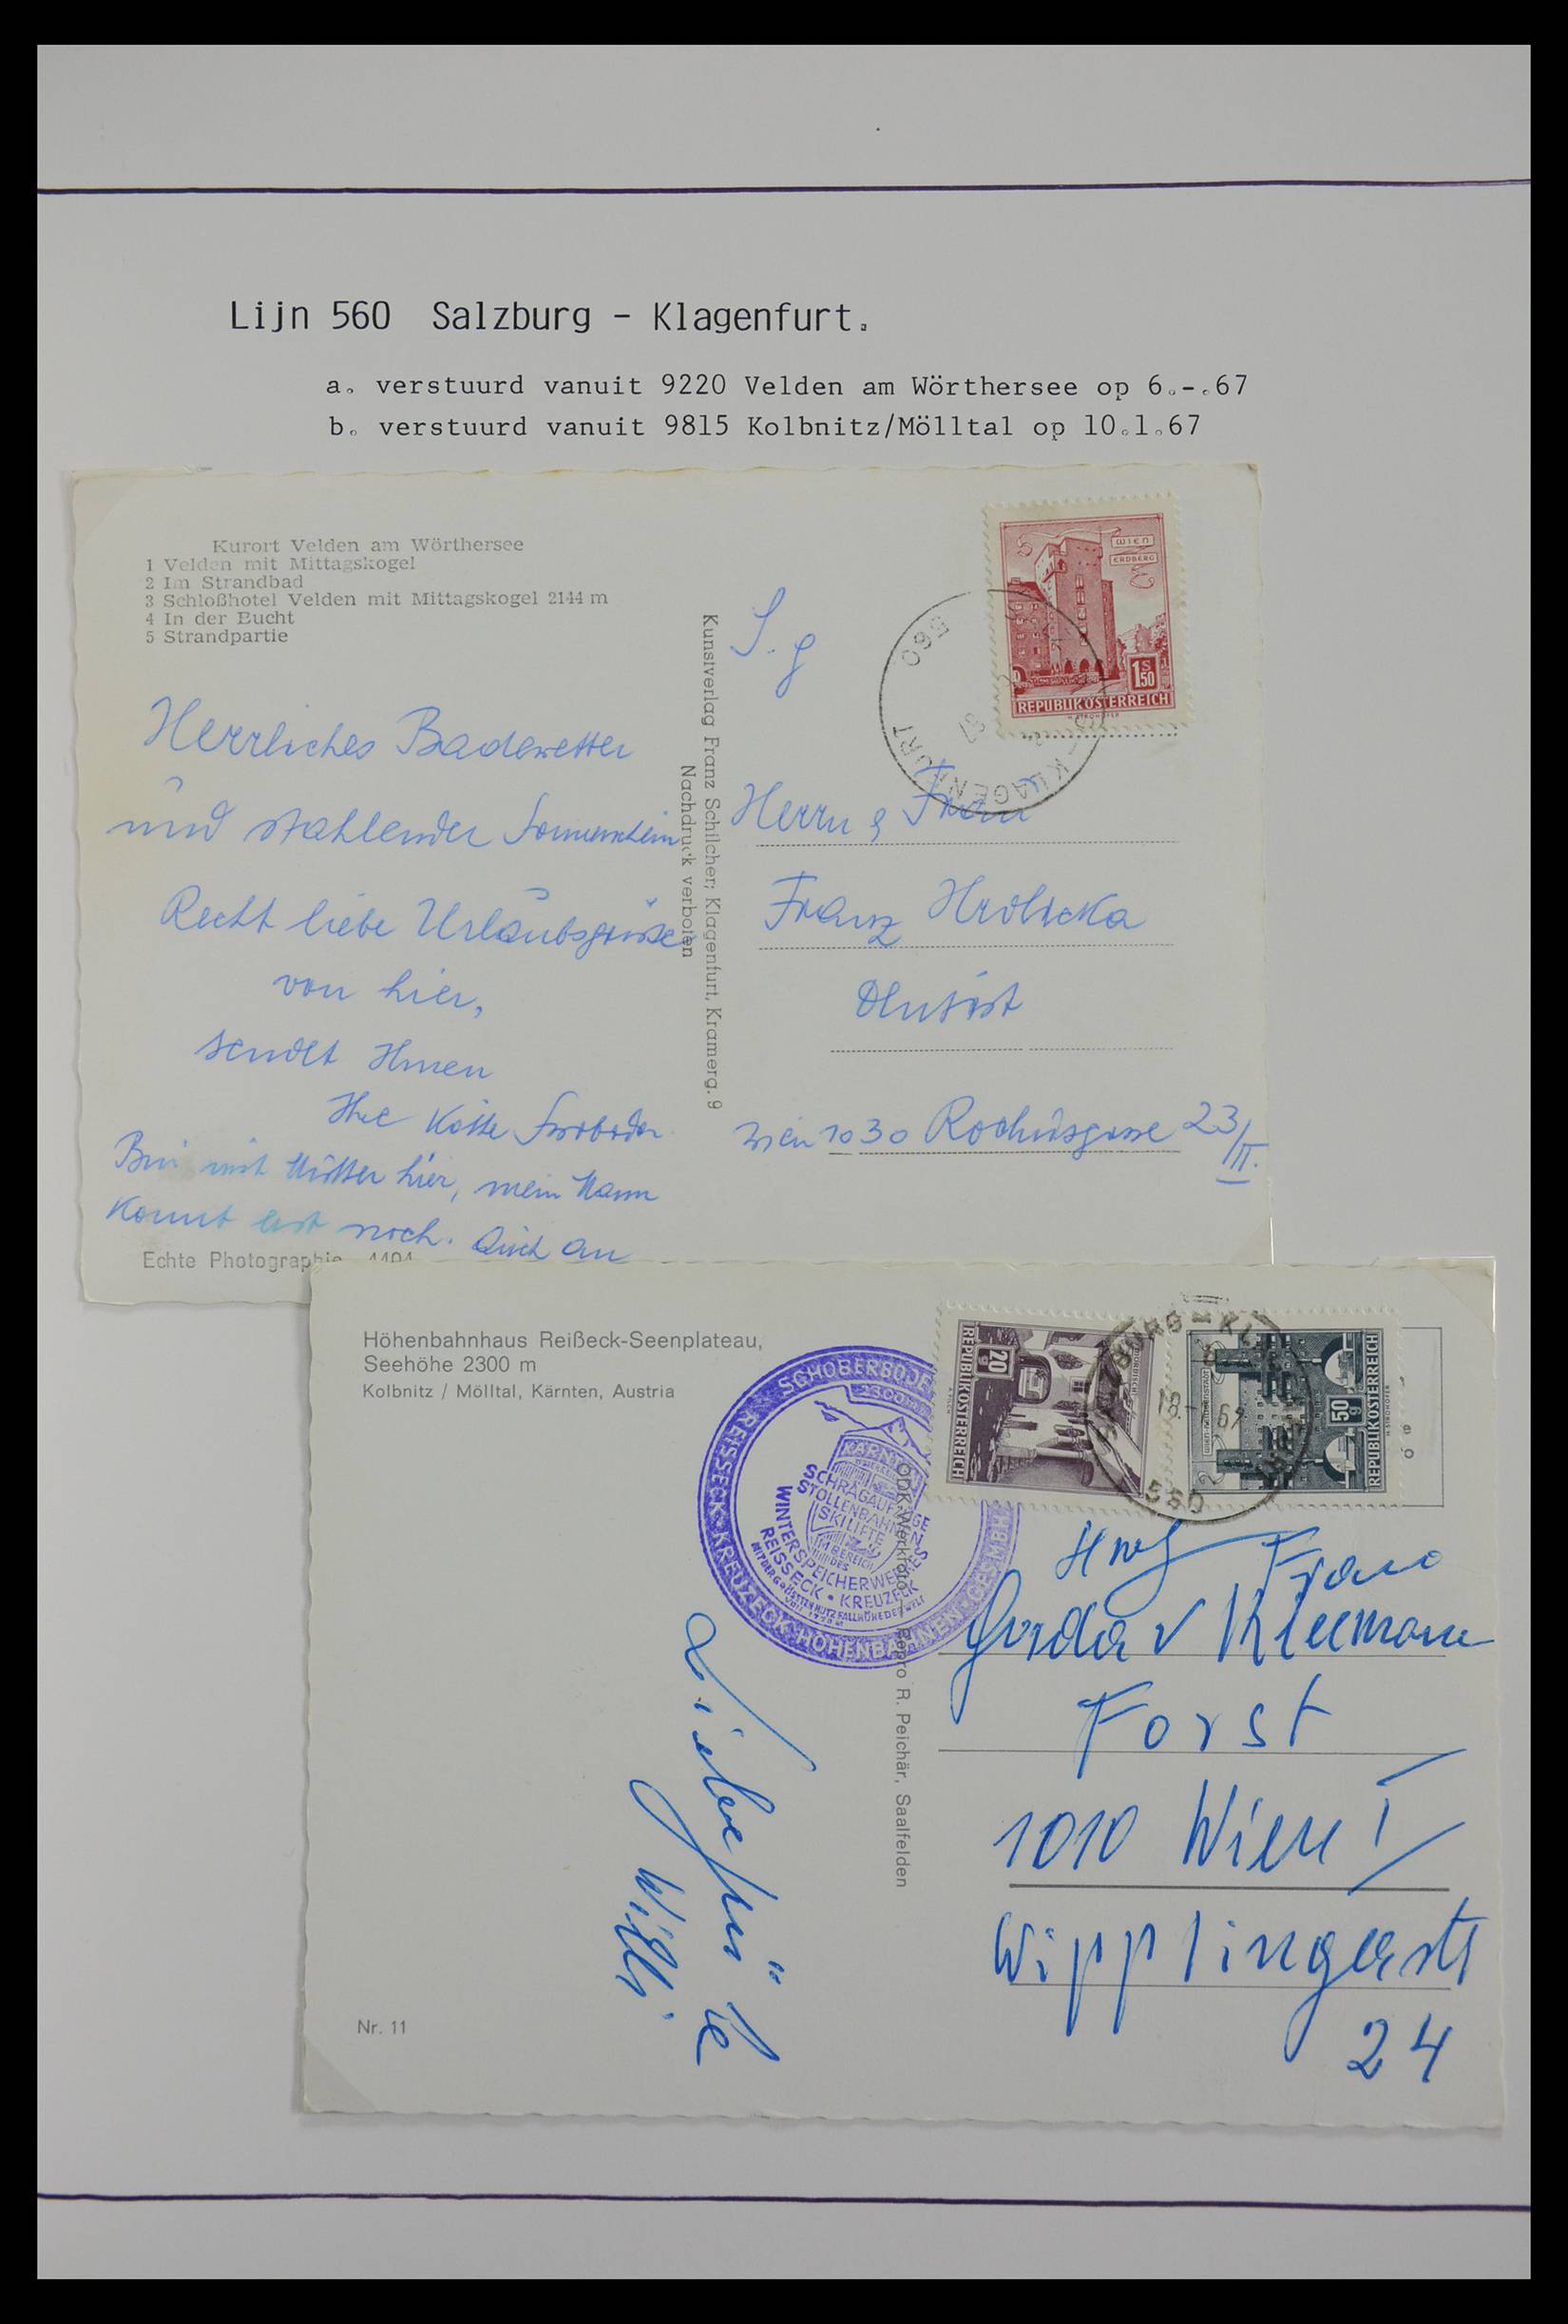 Lijn 560 Salzburg - Klagenfurt.
a. verstuurd vanuit 9220 Velden am Wörthersee op 6.-.67
b. verstuurd vanuit 9815 Kolbnitz/Mölltal op 10.1.67
Kurort Velden am Wörthersee
1 Velden mit Mittagskogel
2 Im Strandbad
3 Schloßhotel Velden mit Mittagskogel 2144 m
4 In der Bucht
5 Strandpartie
Herrliches Badewetter
und stahlender Sonnenschein
Recht liebe Urlaubsgrüsse
von hier,
sendet Ihnen
Ihre Käthe Swoboda
Bin mit Mutter hier, mein Mann
kommt erst noch. Auch an
Echte Photographie
Kunstverlag Franz Schilcher; Klagenfurt, Kramerg. 9
Nachdruck verboten
WIEN
ERDBERG
1 S 50
REPUBLIK ÖSTERREICH
560
KLAGENFURT
S. g
Herrn & Frau
Franz
Wien 1030 Rochusgasse 23/II.
Höhenbahnhaus Reißeck-Seenplateau,
Seehöhe 2300 m
Kolbnitz / Mölltal, Kärnten, Austria
SCHOBERBODE
REISSECK-KREUZECK-HÖHENBAHNEN-GES.MBH
KÄRNTEN
SCHRÄGAUFZÜGE
STOLLENBAHNEN
SKILIFTE
IM BEREICH
DES
WINTERSPEICHERWERKES
REISSECK • KREUZECK
MIT DER GRÖSSTEN NUTZFALLHÖHE DER WELT
20 g
REPUBLIK ÖSTERREICH
50 g
REPUBLIK ÖSTERREICH
SALZBURG - KL
560
ÖDK-Werkfoto / Repro R. Peichär, Saalfelden
Liebe Grüße
Willi
Frau
Gerda v Kleemann
Forst
1010 Wien I
Wipplingerstr
24
Nr. 11